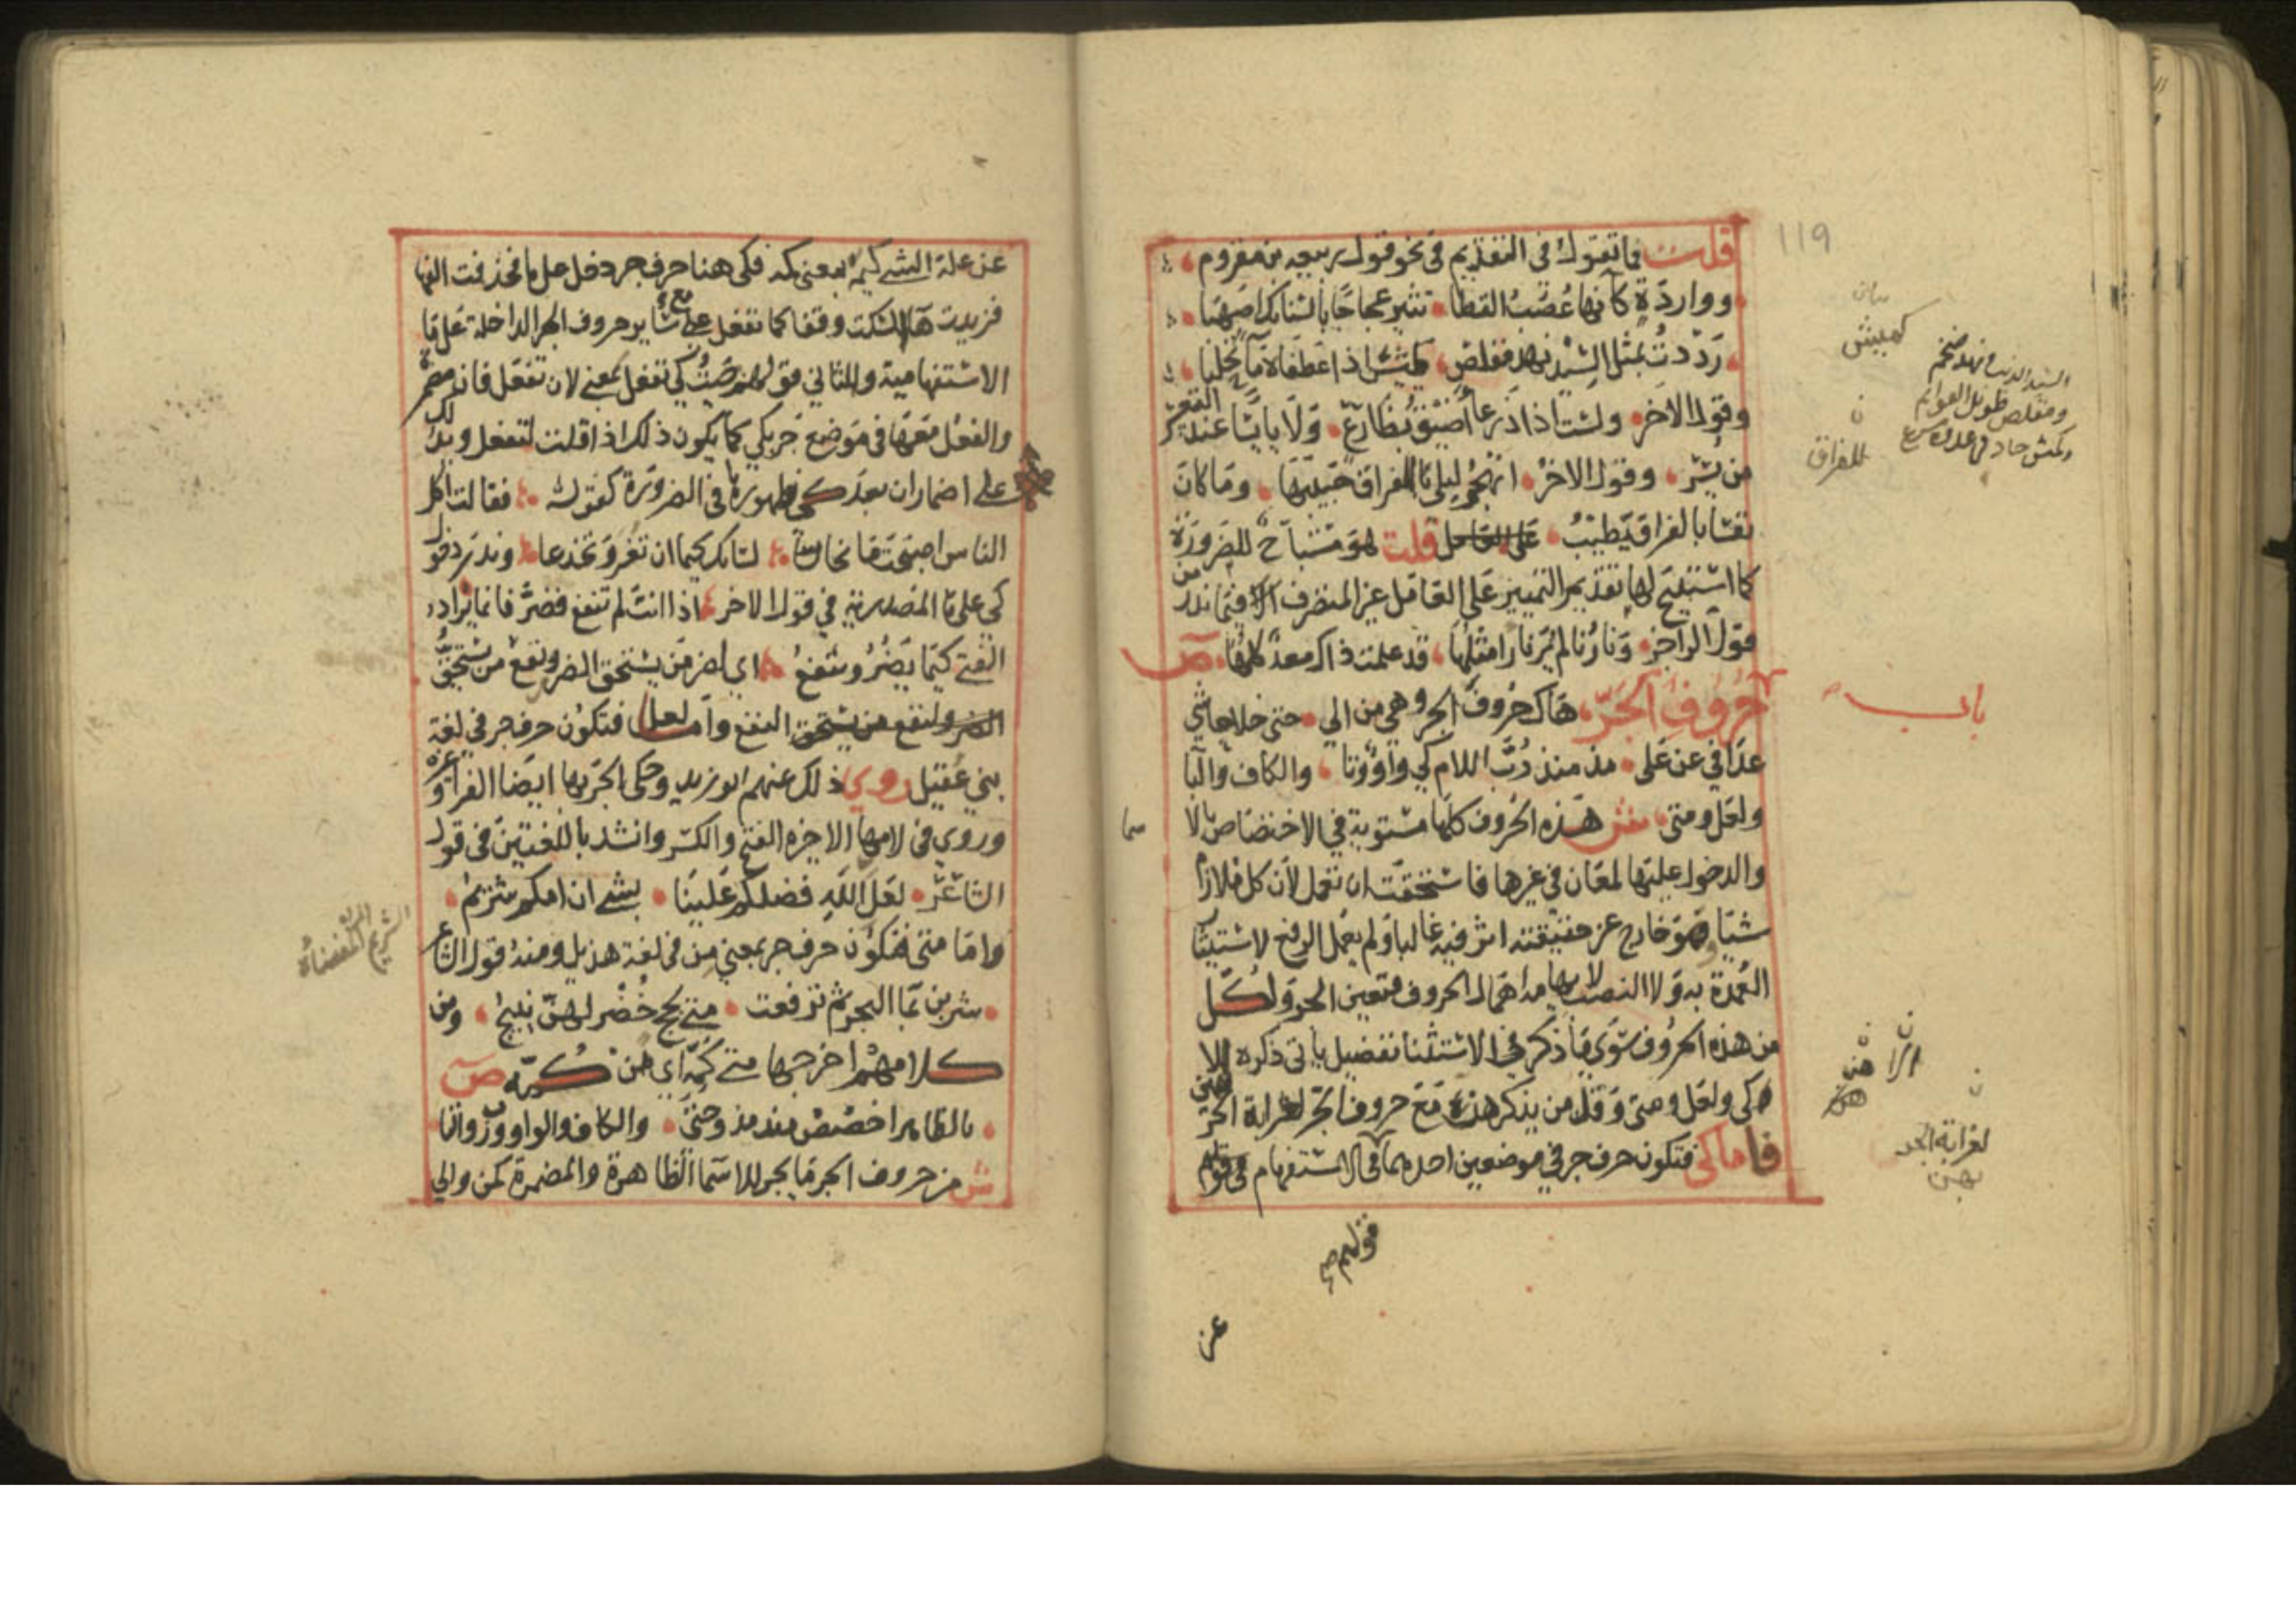 قلت فما تقول في التقديم في نحو قول ربيعه بن مقروم
وواردة كأنها عُصَبُ القطا تثير عجاجًا بالسنابك اصهبا
رَدَدتُ بمثل السيد نهد مقلص كميش اذا عطفاه ماء تحلبا
وقول الاخر ولست اذا ذرعا اضيق بضارع ولا يائسا عند التعسر
من يسر وقول الاخر اتهجر ليلى للفراق حبيبها وما كان
نفسا بالفراق يطيب قلت هو مستباح للضرورة
كما استبيح لها تقديم التمييز على العامل غير المتصرف فيما ندر من
قول الراجز ونارنا لم ير نارا مثلها قد علمت ذاك معد كلها ص
حروف الجر هاك حروف الجر وهي من الى حتى خلا حاشى
عدا في عن على مذ منذ رُبَّ اللام كي واو وتا والكاف والبا
ولعل ومتى ش هذه الحروف كلها مستوية في الاختصاص بالا
سما
والدخول عليها لمعان في غيرها فاستحقت ان تعمل لان كل ما لازم
شيا وهو خارج عن حقيقته اثر فيه غالبا ولم يعمل الرفع لاستيثا
العمدة به ولا النصب لايهام اهمال الحروف فتعين الجر ولكل
من هذه الحروف سوى ما ذكر في الاستثنا تفصيل ياتي ذكره الا
كي ولعل ومتى وقل من يذكرهن مع حروف الجر لغرابة الجر بهن
فاما كي فتكون حرف جر في موضعين احدهما في الاستفهام في قولهم
قولهم صح
عن
119
بيان
كميش
السيد الذئب نهد ضخم
ومقلص طويل القوائم
وكمش حاد في عدوه سريع
ن
للفراق
باب
ن
لغرابة الجر
بهن
عن علة الشي كيمه بمعنى لمه فكي هنا حرف جر دخل على ما فحذفت الفها
فزيدت هآ السكت وقفا كما تفعل مع سائر حروف الجر الداخلة على ما
الاستفهامية والثاني قولهم جيت كي تفعل بمعنى لان تفعل فان مضمرة
والفعل معها في موضع جر بكي كما يكون ذلك اذا قلت لتفعل ويدلك
على اضمار ان بعد كي ظهورها في الضرورة كقوله فقالت اكل
الناس اصبحت مانحا لسانك كيما ان تغر وتخدعا وندر دخول
كي على ما المصدرية في قول الاخر اذا انت لم تنفع فضر فانما يراد
الفتى كيما يضر وينفع اي لضر من يستحق الضر ونفع من يستحق
النفع واما لعل فتكون حرف جر في لغة
بني عقيل روي ذلك عنهم ابو زيد وحكى الجر بها ايضا الفرا وغيره
وروي في لامها الاخيره الفتح والكسر وانشد باللغتين في قول
الشاعر لعل الله فضلكم علينا بشي ان امكم شريم
وامّا متى فتكون حرف جر بمعنى من في لغة هذيل ومنه قول الشاعر
شربن بما البحر ثم ترفعت متى لجج خضر لهن نئيج ومن
كلامهم اخرجها متى كمه اي من كمه ص
بالظاهر اخصص منذ مذ وحتى والكاف والواو ورب والتا
ش من حروف الجر ما يجر للاسما الظاهرة والمضمرة كمن والى
الشريم المراة
المفضاة